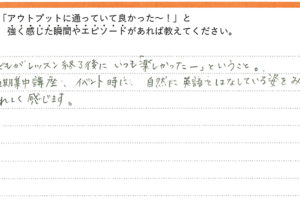 「アウトプットに通っていて良かった〜！」と
強く感じた瞬間やエピソードがあれば教えてください。
どもがレッスン終了後に いつも「楽しかったー」ということ。
期集中講座、イベント時に、自然に英語ではなしている姿をみ
れしく感じます。